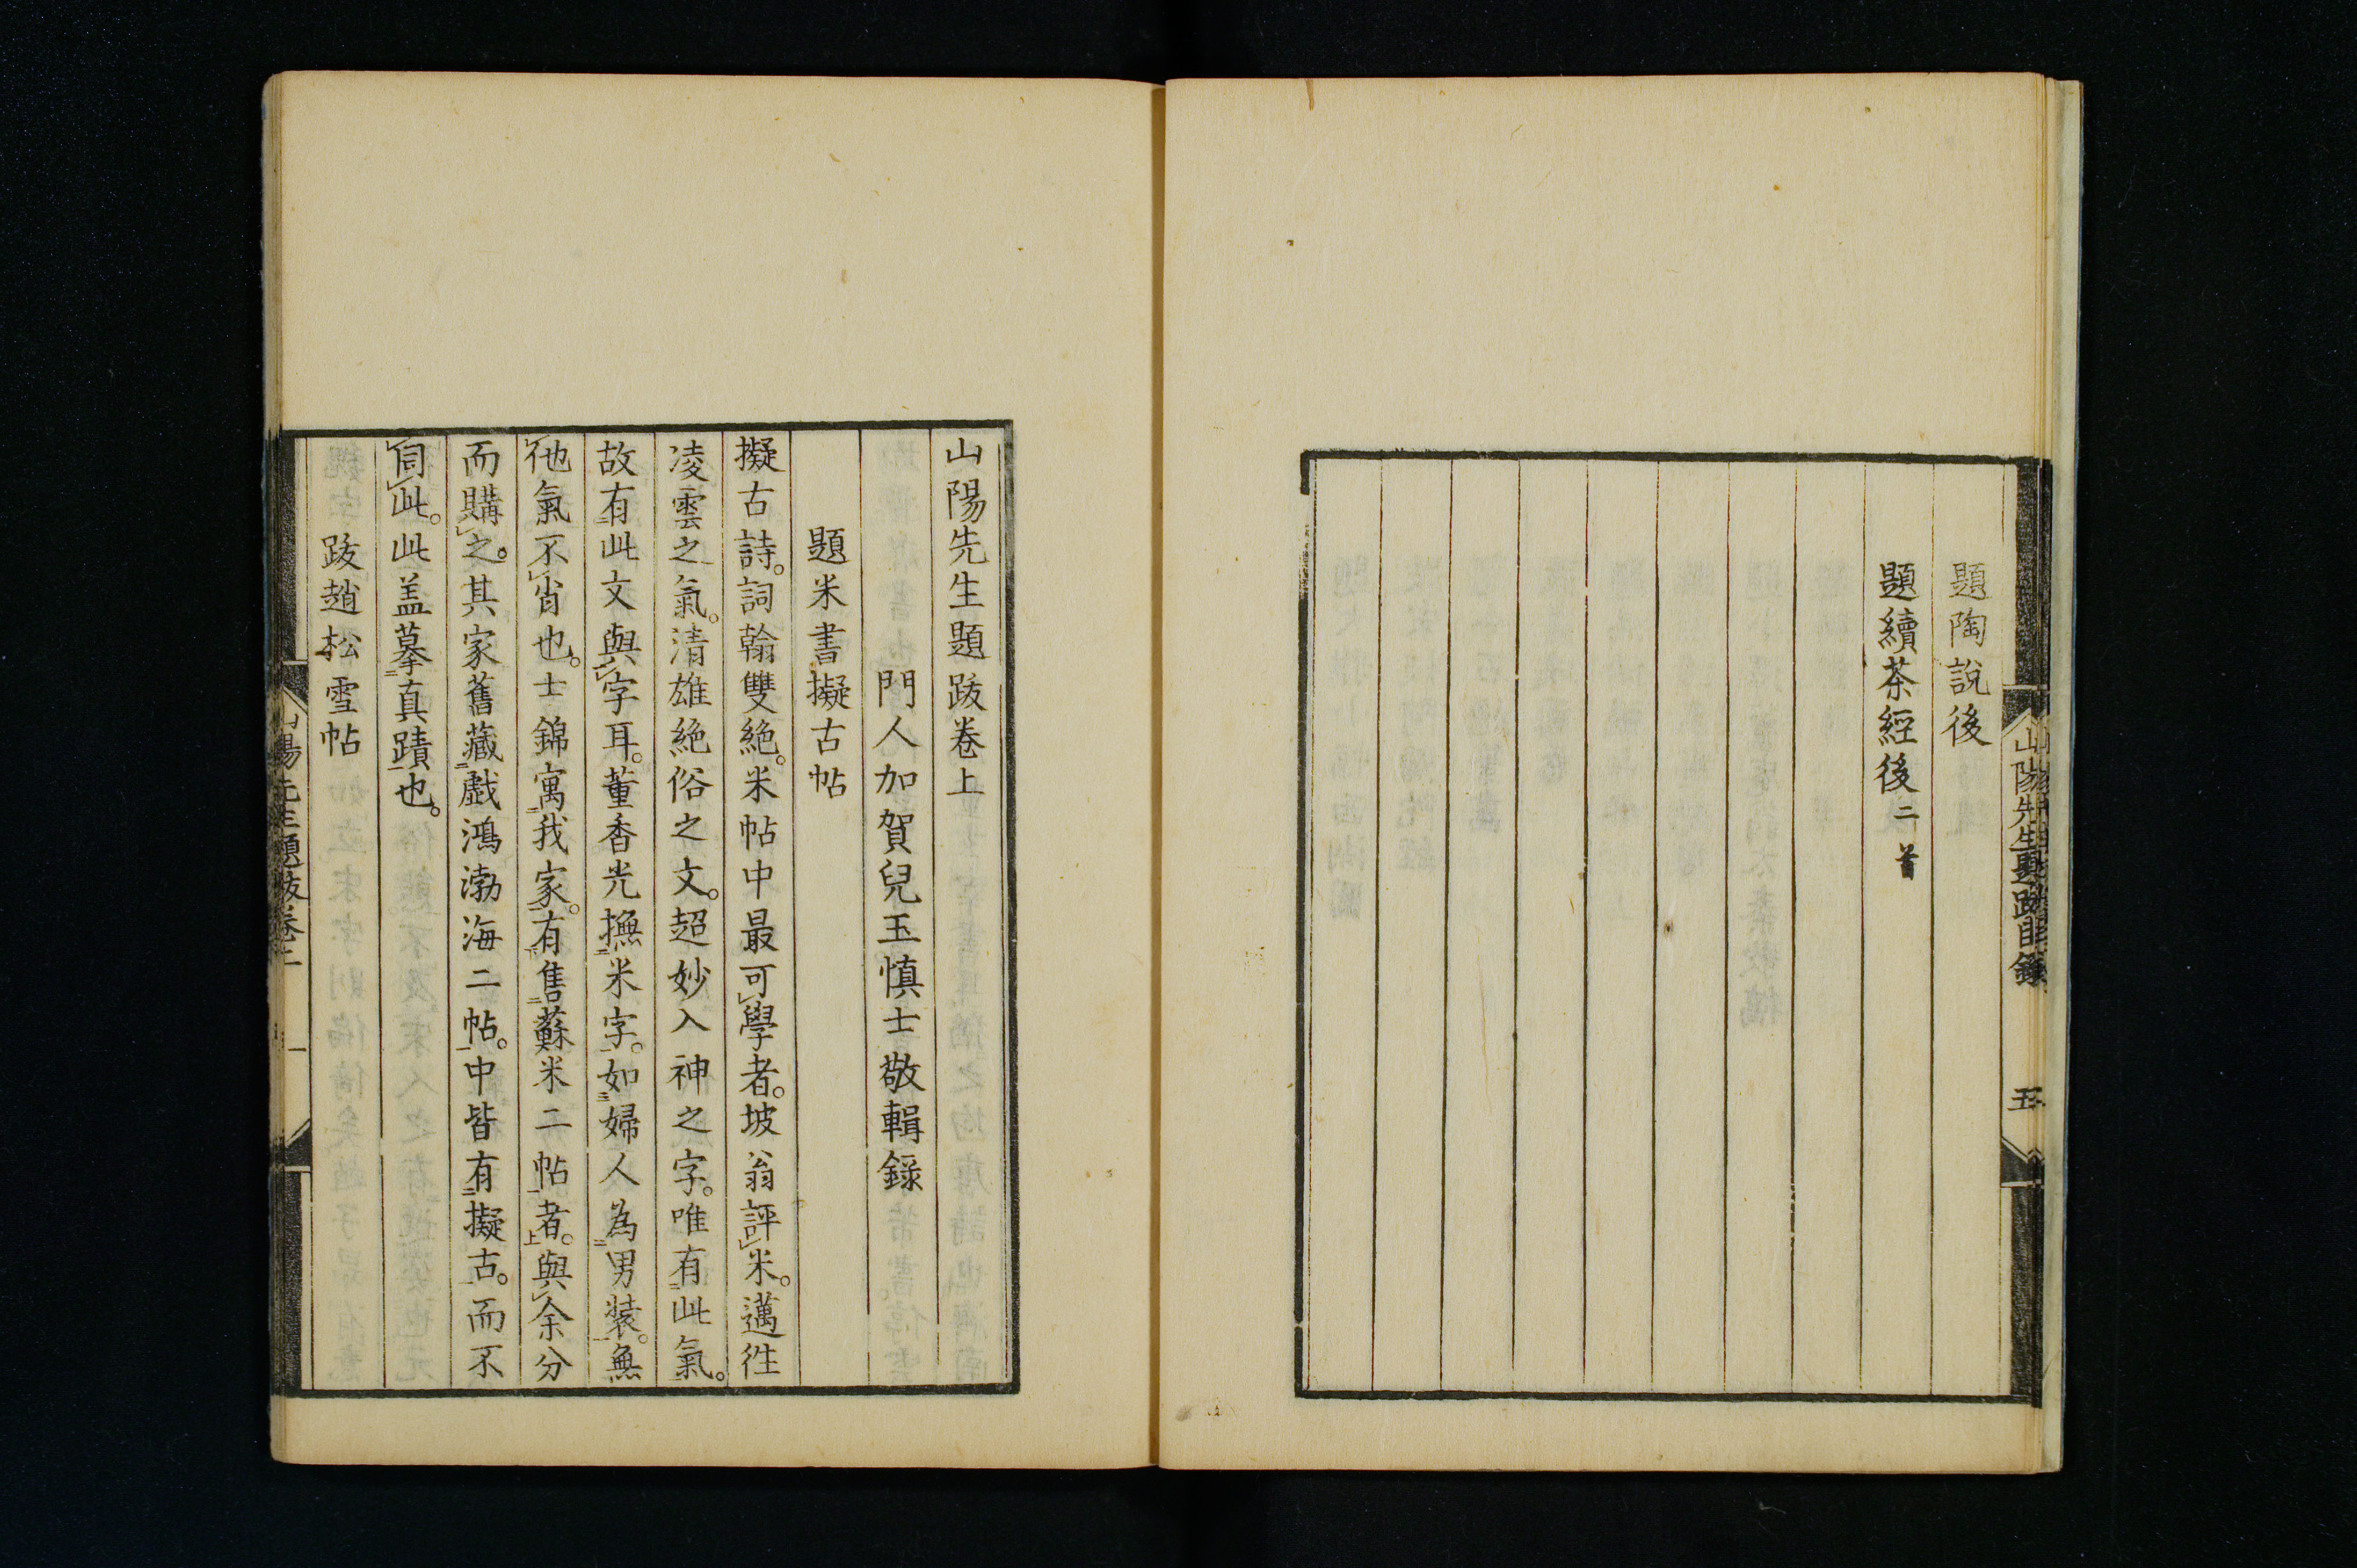 題陶說後
題續茶經後二首
山陽先生題跋目錄 五
山陽先生題跋卷上
門人加賀兒玉慎士敬輯錄
題米書擬古帖
擬古詩。詞翰雙絶。米帖中最可學者。坡翁評米。邁往
凌雲之氣。清雄絶俗之文。超妙入神之字。唯有此氣。
故有此文與字耳。董香光撫米字。如婦人為男裝。無
他氣不省也。士錦寓我家。有售蘇米二帖者。與余分
而購之。其家舊藏戲鴻渤海二帖。中皆有擬古。而不
同此。此盖摹真蹟也。
跋趙松雪帖
山陽先生題跋卷上 一